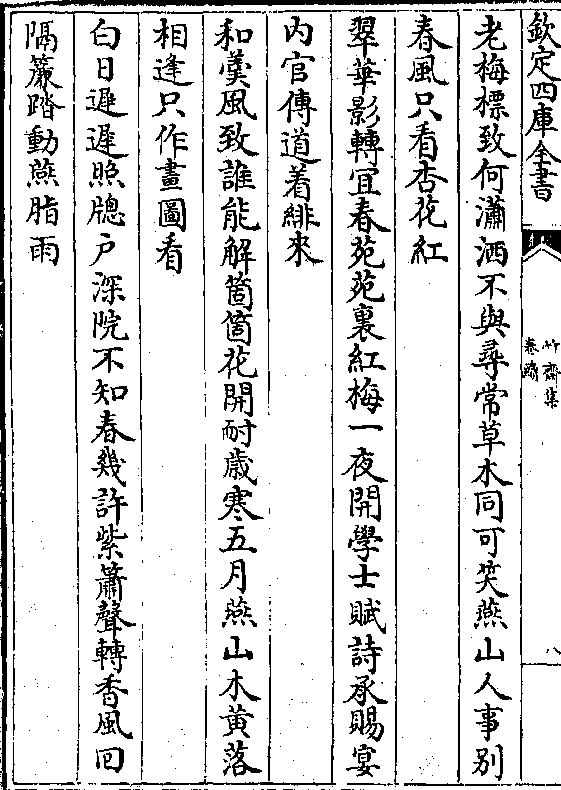 欽定四庫全書
竹齋集
卷續
八
老梅標致何瀟洒不與尋常草木同可笑燕山人事别
春風只看杏花紅
翠華影轉宜春苑苑裏紅梅一夜開學士賦詩承賜宴
内官傳道着緋來
和羮風致誰能解箇箇花開耐歲寒五月燕山木黄落
相逢只作畫圖看
白日遲遲照牕戶深院不知春幾許紫簫聲轉香風回
隔簾踏動燕脂雨